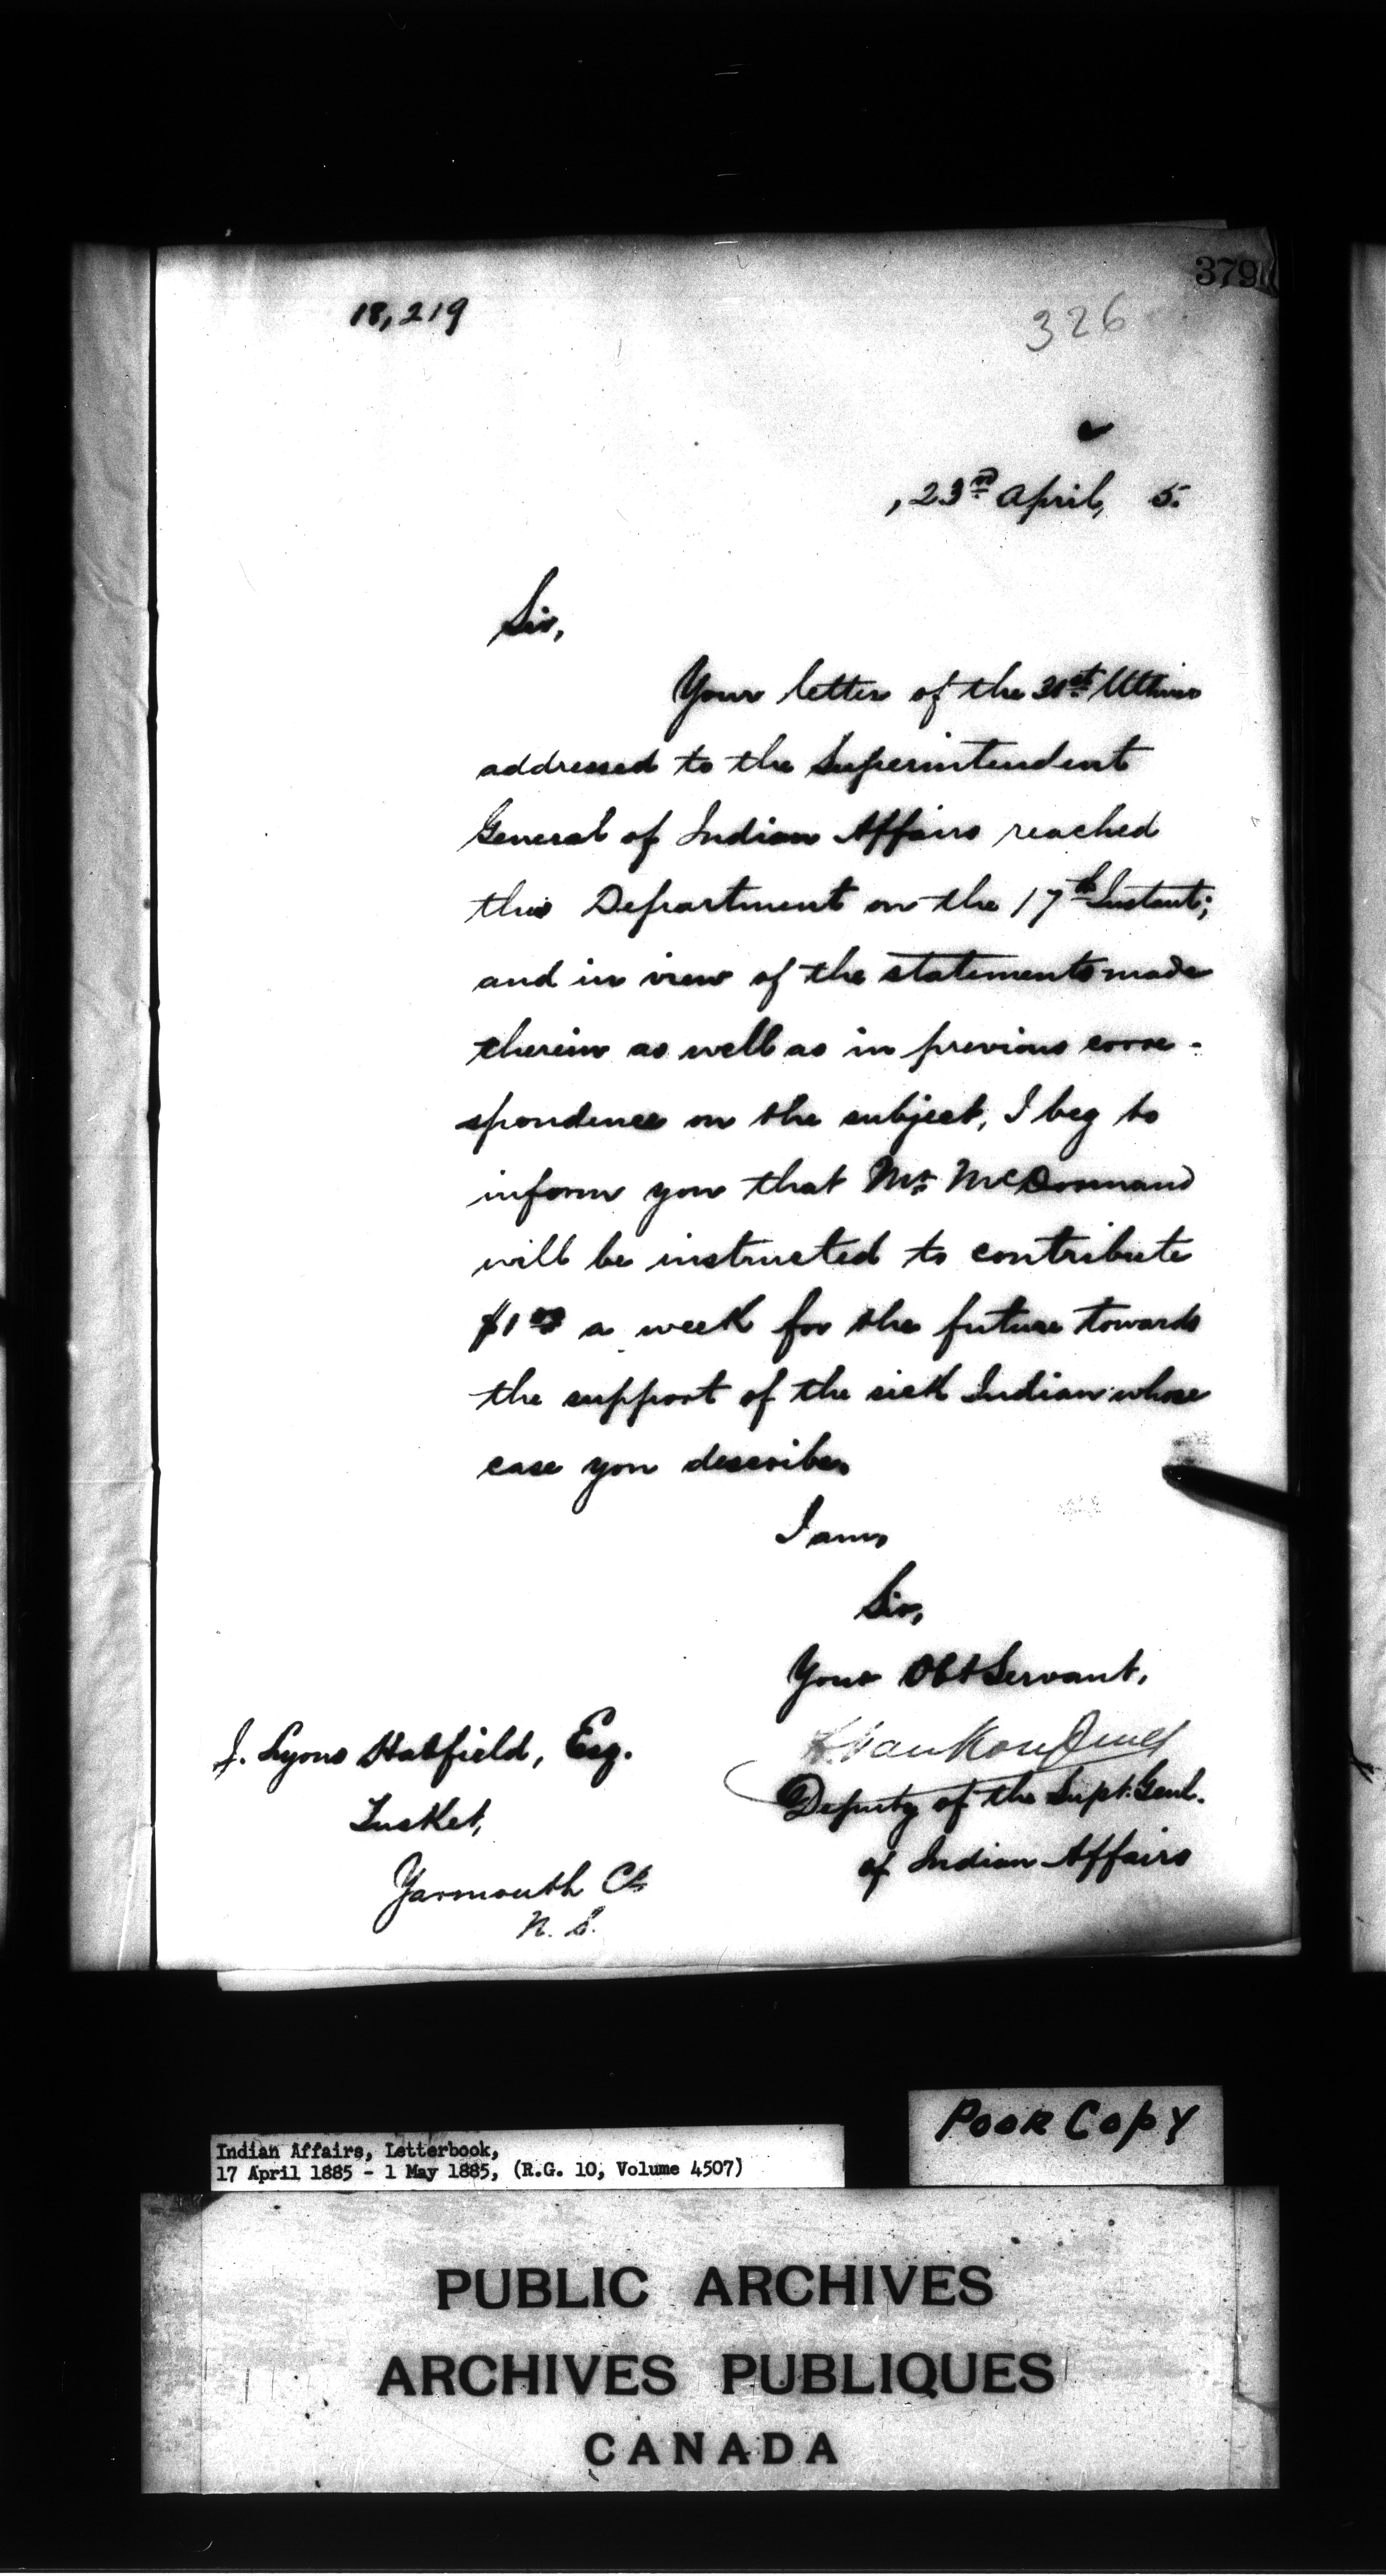 379
18,219
326
, 23rd April, 5.
Sir,
Your letter of the 31st Ultimo
addressed to the Superintendent
General of Indian Affairs reached
this Department on the 17th Instant;
and in view of the statements made
therein as well as in previous corre-
spondence on the subject, I beg to
inform you that Mr. McDormand
will be instructed to contribute
$1.00 a week for the future towards
the support of the sick Indian whose
case you describe.
I am,
Sir,
Your Obt Servant,
L. VanKoughnet
Deputy of the Supt. Genl.
of Indian Affairs
J. Lyons Hatfield, Esq.
Tusket,
Yarmouth Co.
N. S.
POOR COPY
Indian Affairs, Letterbook,
17 April 1885 - 1 May 1885, (R.G. 10, Volume 4507)
PUBLIC ARCHIVES
ARCHIVES PUBLIQUES
CANADA